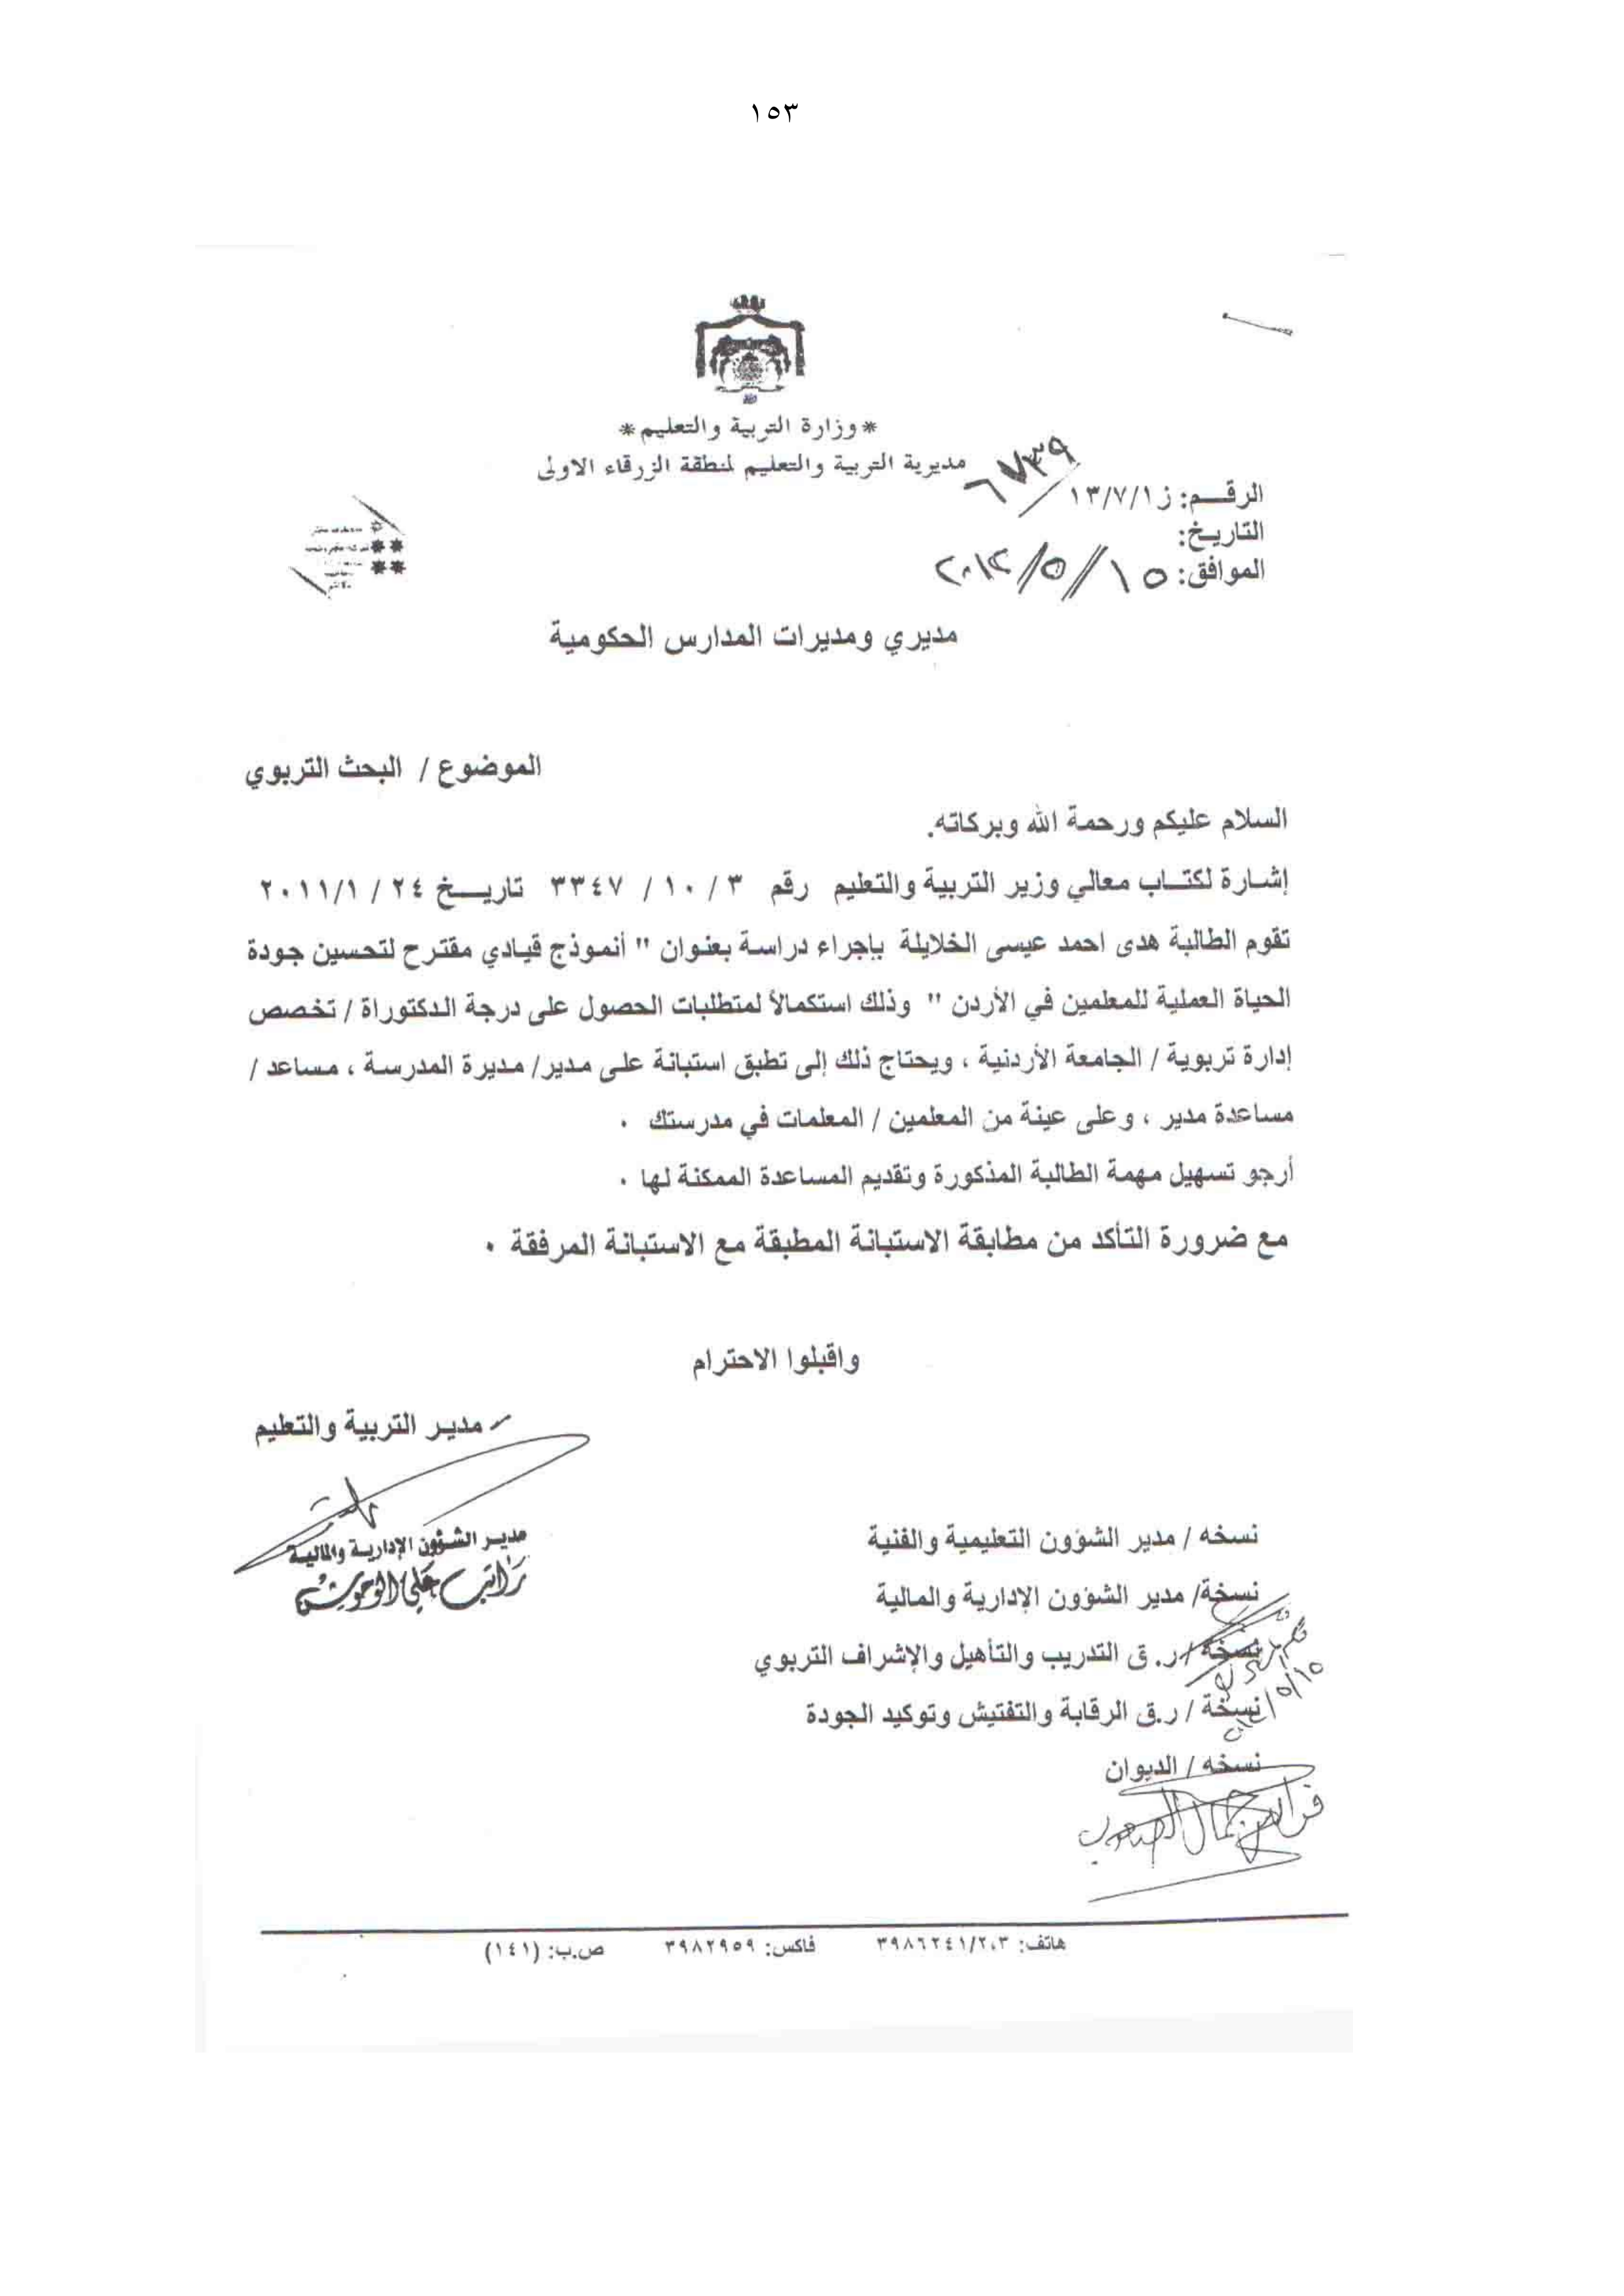 ١٥٣
*وزارة التربية والتعليم*
مديرية التربية والتعليم لمنطقة الزرقاء الاولى
الرقـــم: ز١٣/٧/١/ ٦٧٣٩
التاريخ:
الموافق: ١٥/٥/٢٠١٢
مديري ومديرات المدارس الحكومية
الموضوع / البحث التربوي
السلام عليكم ورحمة الله وبركاته.
إشارة لكتـــاب معالي وزير التربية والتعليم رقم ٣ / ١٠ / ٣٣٤٧ تاريـــخ ٢٤ / ٢٠١١/١
تقوم الطالبة هدى احمد عيسى الخلايلة بإجراء دراسة بعنوان " أنموذج قيادي مقترح لتحسين جودة
الحياة العملية للمعلمين في الأردن " وذلك استكمالاً لمتطلبات الحصول على درجة الدكتوراة / تخصص
إدارة تربوية / الجامعة الأردنية ، ويحتاج ذلك إلى تطبق استبانة على مدير/ مديرة المدرسة ، مساعد /
مساعدة مدير ، وعلى عينة من المعلمين / المعلمات في مدرستك .
أرجو تسهيل مهمة الطالبة المذكورة وتقديم المساعدة الممكنة لها .
مع ضرورة التأكد من مطابقة الاستبانة المطبقة مع الاستبانة المرفقة .
واقبلوا الاحترام
مديـر التربية والتعليم
مديـر الشؤون الإدارية والمالية
راتب علي الوحوش
نسخه / مدير الشؤون التعليمية والفنية
نسخة/ مدير الشؤون الإدارية والمالية
نسخة / ر. ق التدريب والتأهيل والإشراف التربوي
نسخة / ر.ق الرقابة والتفتيش وتوكيد الجودة
١٥/٥
نسخه / الديوان
هاتف: ٣٩٨٦٢٤١/٢،٣ فاكس: ٣٩٨٢٩٥٩ ص.ب: (١٤١)